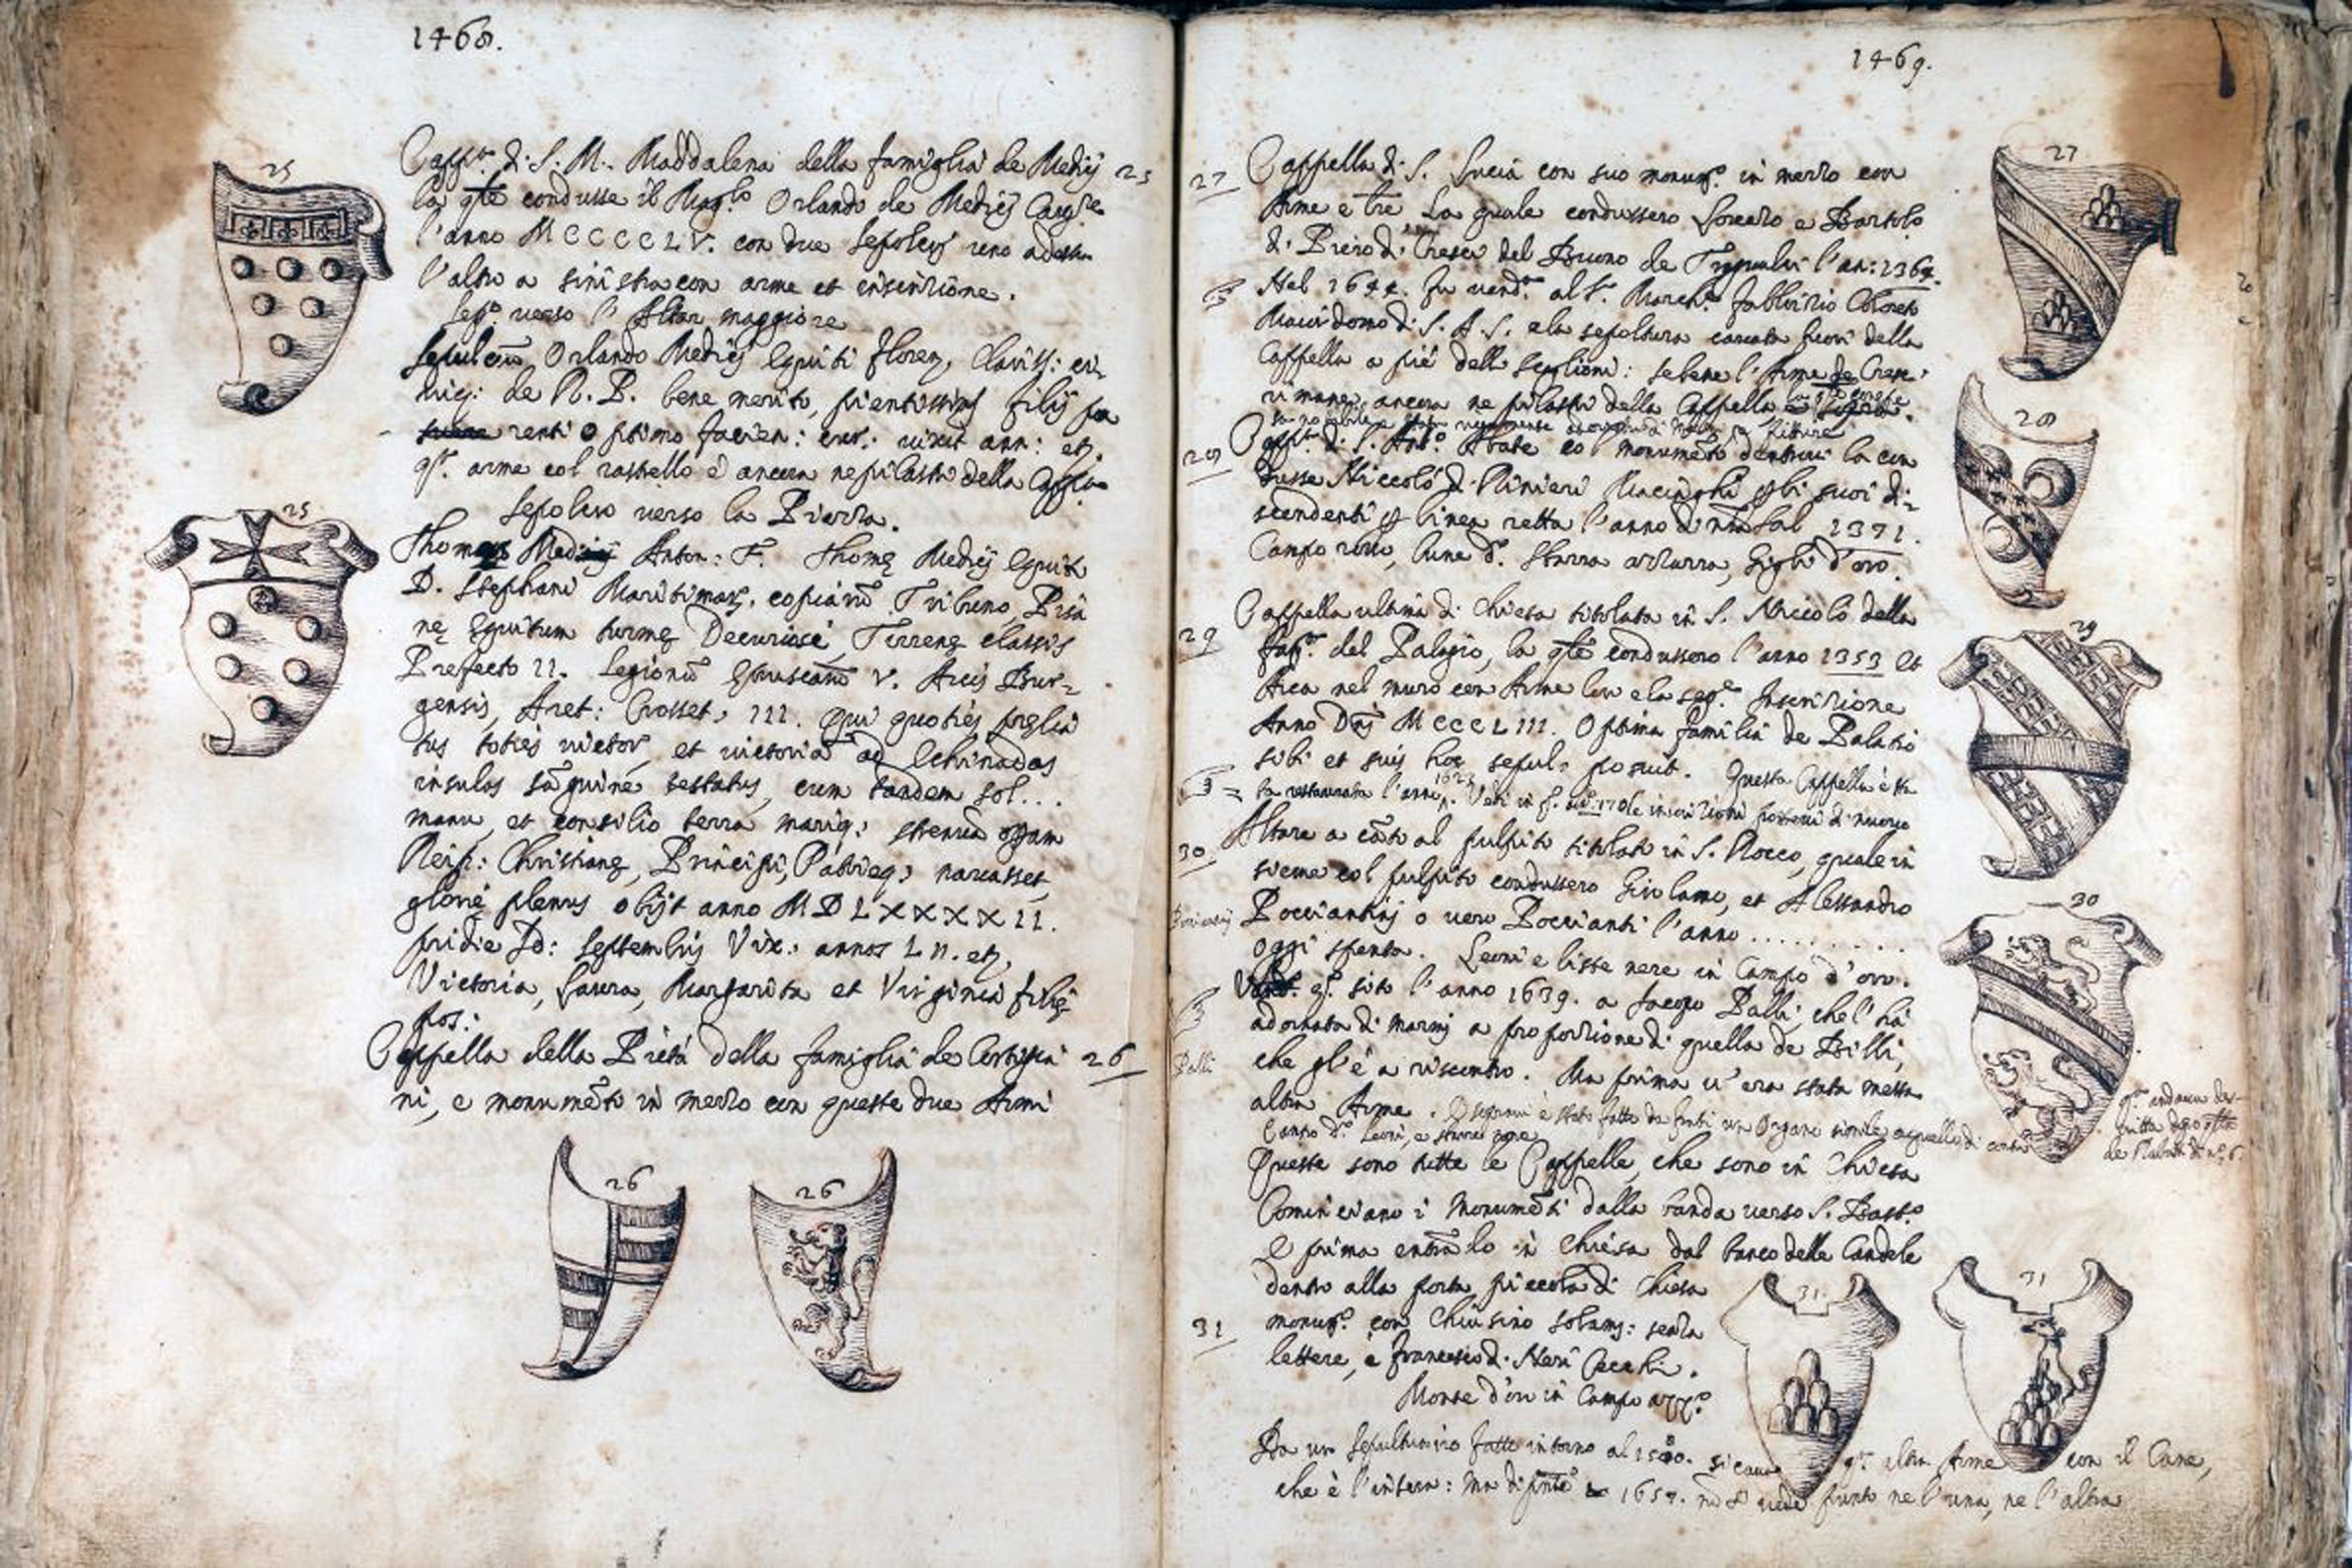 1468.
25
Capp.ª di S. M. Maddalena della famiglia de Medicj 25
la qle condusse il Mag.co Orlando de Medicj Cavre
l'anno MCCCCLV. con due sepolcrj uno adestra
l'altro a sinistra con arme et inscrizione.
Sepo. verso l'Altar maggiore
Orlando Medicj Equiti Floren. Clariss:
de R. P. bene merito, pientissimj filij pa
renti optimo facien: cur: vixit ann: etc.
qta. arme col rastrello è ancora ne pilastri della Cappa
25
Sepolcro verso la Piazza.
Anton: F. Thomę Medicj Equit
D. Stephani Maritimar. copiarũ Tribuno, Pisa
nę Equitum turmę Decurioni, Tirrenę classis
Prefecto II. Legionũ Etruscarũ V. Arcis Bur-
gensis, Aret: III. Qui quoties pręlia
tus toties victor, et victoria ad Echinadas
insulas sãguine testatus, cum tandem sol...
manu, et consilio terra mariq; strenuã opam
Reip: Christianę, Principi, Patrięq; navasset,
glorię plenus obijt anno MDLXXXXII.
pridie Id: Septembris Vix: annos LII. etc.
Victoria, Laura, Margarita et Virginia filię
pos:
Cappella della Pietà della famiglia de 26
ni, e monumẽto in mezzo con queste due Armi
26
26
1469.
27
27 Cappella di S. Lucia con suo monumto. in mezzo con
Arme e tre La quale condussero Lorenzo e Bartolo
di Piero di Cresci del Bruno de l'an: 1364.
Nel 1644. fu vend.ª al S. March.e Fabbrizio Coloreto
Maiordomo di S. A. S. e la sepoltura cavata fuori della
Cappella a piè delli scaglioni: sebene l'Arme de Cresci
rimane ancora ne pilastri della Cappella
28
28 Capp.ª di S. Anto. Abate co l' monumẽto dentrovi la con
dusse Niccolò di Rinieri Macinghi pli suoi di-
scendenti p linea retta l'anno di nra Sal. 1371.
Campo rosso, lune d'. Sbarra azzurra, Gigli d'oro.
29
29 Cappella ultima di Chiesa titolata in S. Niccolò della
fam.ª del Palagio, la qle condussero l'anno 1353 et
Arca nel muro con Arme loro e la segte Inscrizione
Anno Dni MCCCLIII. Optima familia de Palatio
sibi et suis hoc sepul. posuit. Questa Cappella è sta
ta restaurata l'anno 162
30
30 Altare a cãto al pulpito titolato in S. Rocco, quale in
sieme col pulpito condussero Girolamo, et Alessandro
Poccianti l'anno..........
oggi spenta. Leoni e liste nere in Campo d'oro.
qto. sito l'anno 1639. a Jacopo Palli, che l'hà
adornata di marmj a proporzione di quella de Billi,
Palli che gl'è a riscontro. Ma prima v'era stata messa
altra Arme. Di sopravi è stato fatto da frati un Organo simile a quello di contro
Campo d'. Leoni, e sbarra
Queste sono tutte le Cappelle, che sono in Chiesa
Cominciano i Monumẽti dalla banda verso S. Bast.o
E prima entrãdo in Chiesa dal banco delle Candele
dentro alla porta piccola di Chiesa
31 monumto. con Chiusino solamte: senza
lettere, è Francesco di Neri Cecchi.
Monte d'oro in Campo azzo.
31
31
Da un sepultuario fatto intorno al 1500. si cava qta. altra Arme con il Cane,
che è l'intera: Ma di pnte 1657. nõ si vede punto ne l'una, ne l'altra